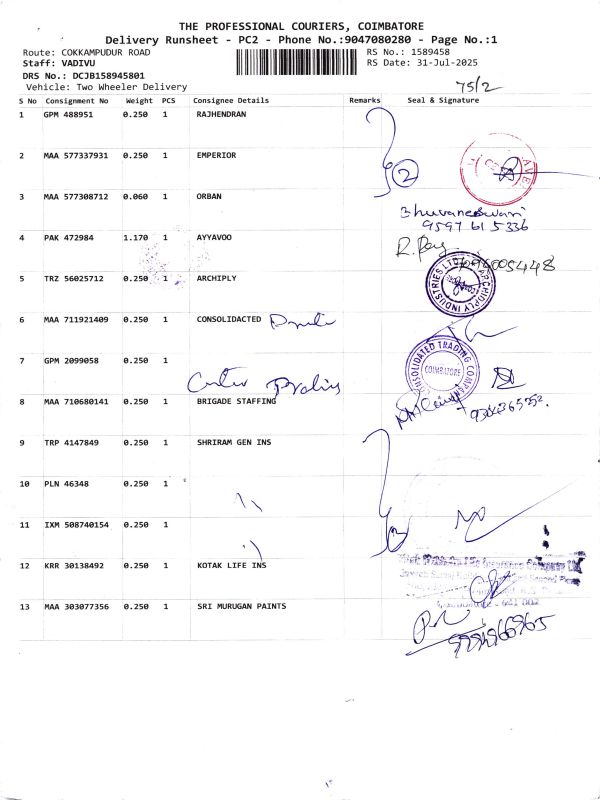 THE PROFESSIONAL COURIERS, COIMBATORE
Delivery Runsheet - PC2 - Phone No.:9047080280 - Page No.:1
Route: COKKAMPUDUR ROAD RS No.: 1589458
Staff: VADIVU RS Date: 31-Jul-2025
DRS No.: DCJB158945801
Vehicle: Two Wheeler Delivery 75/2
S No Consignment No Weight PCS Consignee Details Remarks Seal & Signature
1 GPM 488951 0.250 1 RAJHENDRAN
2 MAA 577337931 0.250 1 EMPERIOR 2
3 MAA 577308712 0.060 1 ORBAN
Bhuvaneswari
9597615336
4 PAK 472984 1.170 1 AYYAVOO
5 TRZ 56025712 0.250 1 ARCHIPLY
ARCHIDPLY INDUSTRIES LTD
6 MAA 711921409 0.250 1 CONSOLIDACTED
7 GPM 2099058 0.250 1
CONSOLIDATED TRADING COMPANY
COIMBATORE
8 MAA 710680141 0.250 1 BRIGADE STAFFING
9 TRP 4147849 0.250 1 SHRIRAM GEN INS
10 PLN 46348 0.250 1
11 IXM 508740154 0.250 1 3
12 KRR 30138492 0.250 1 KOTAK LIFE INS
Insurance Company Ltd
641 002
13 MAA 303077356 0.250 1 SRI MURUGAN PAINTS